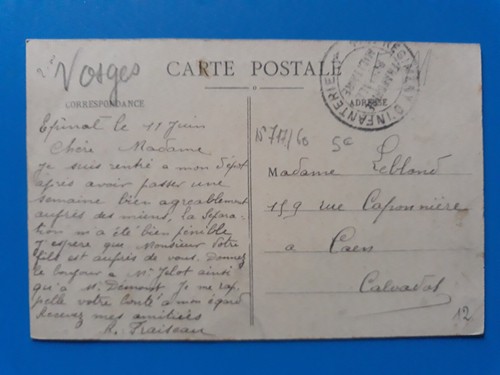 Vosges
CARTE POSTALE
CORRESPONDANCE
ADRESSE
D'INFANTERIE
Epinal le 11 Juin
Chère Madame
Je suis rentré a mon Dépot
après avoir passer une
semaine bien agréablement
auprès des miens, la Sépara-
tion m'a été bien pénible
J'espère que Monsieur Votre
fils est auprès de vous. Donnez
le bonjour a Mr Jelot ainsi
qu'a Mr Demont. Je me rap-
pelle votre bonté a mon égard
Recevez mes amitiés
Fraiseau
N 717/60
5e
Madame Leblond
159 rue Caponnière
a Caen
Calvados
12